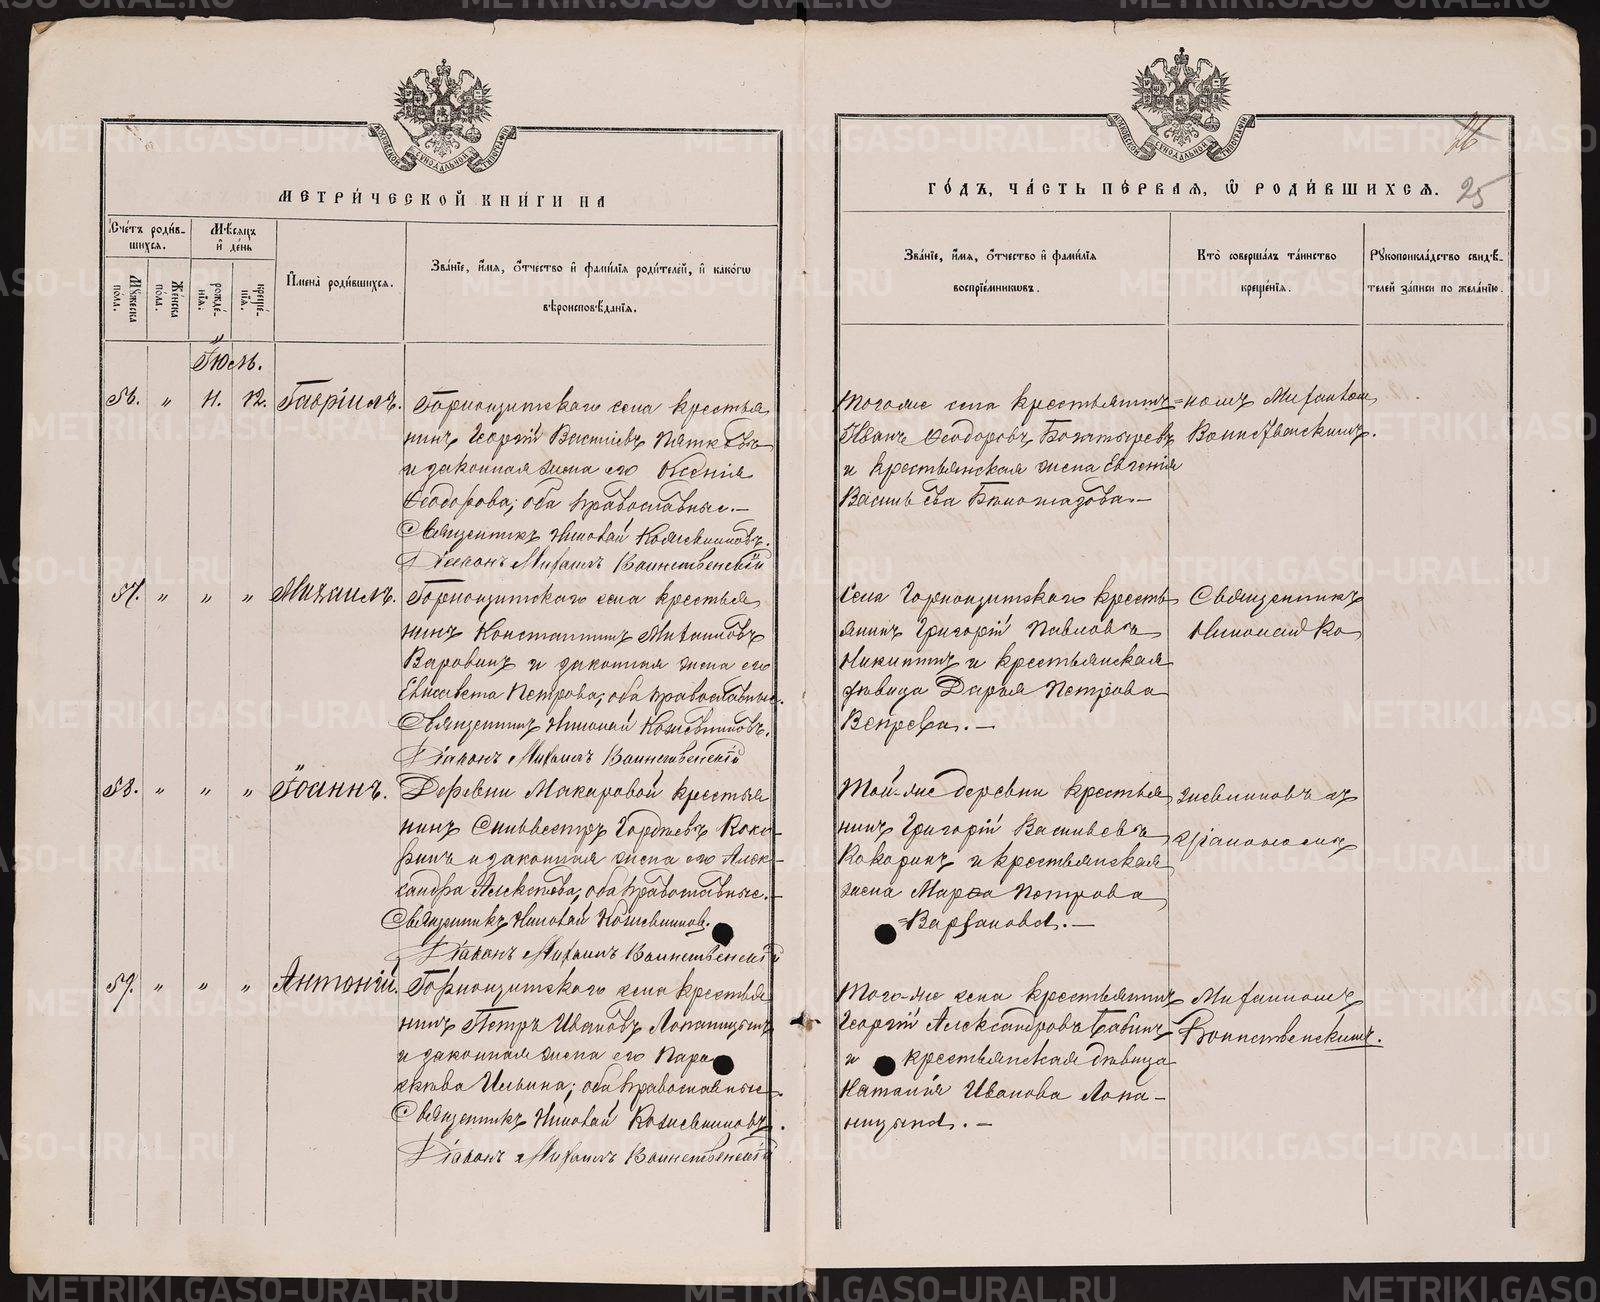 МЕТРИ́ЧЕСКОЙ КНИ́ГИ НА
Счéтъ роди́в-
шихся.
Мѣ́сяцъ
и́ де́нь
Мꙋ́жеска
по́ла.
Же́нска
по́ла.
рожде́-
нїя.
креще́-
нїя.
И҆мена̀ роди́вшихся.
Зва́нїе, и҆́мя, ѻ҆́тчество и҆ фами́лїя роди́телей, и҆ како́гѡ
вѣроисповѣ́данїя.
Іюль.
56. " 11. 12. Гавріилъ.
Горнощитскаго села крестья
нинъ Георгій Васильевъ Пятковъ
и законная жена его Ксенія
Ѳеодорова; оба православные.—
Священникъ Николай Кожевниковъ.
Діаконъ Михаилъ Воинственскій
57. " " " Михаилъ.
Горнощитскаго села крестья
нинъ Константинъ Михаиловъ
и законная жена его
Елисавета Петрова; оба православные.
Священникъ Николай Кожевниковъ.
Діаконъ Михаилъ Воинственскій
58. " " " Іоаннъ.
Деревни Макаровой крестья
нинъ Сильвестръ Гордѣевъ Коко-
ринъ и законная жена его Алек-
сандра Алексѣева; оба православные.—
Священникъ Николай Кожевниковъ.
Діаконъ Михаилъ Воинственскій
59. " " " Антоній.
Горнощитскаго села крестья
нинъ Петръ Ивановъ Лопаницынъ
и законная жена его Пара
скѣва Ильина; оба православные.
Священникъ Николай Кожевниковъ.
Діаконъ Михаилъ Воинственскій
ГО́ДЪ, ЧА́СТЬ ПЕ́РВАЯ, Ѽ РОДИ́ВШИХСЯ.
26
25
Зва́нїе, и҆́мя, ѻ҆́тчество и҆ фами́лїя
воспрїе́мникѡвъ.
Кто̀ соверша́лъ та́инство
креще́нїя.
Рꙋкоприкла́дство свидѣ́-
телей за́писи по жела́нїю.
Того-же села крестьянинъ
Иванъ Ѳеодоровъ Богатыревъ
и крестьянская жена Евгенія
Васильева
номъ Михаиломъ
Воинственскимъ.
Села Горнощитскаго кресть
янинъ Григорій Павловъ
Никитинъ и крестьянская
дѣвица Дарья Петрова
Вепрева.—
Священникъ
Николай Ко
Той-же деревни крестья
нинъ Григорій Васильевъ
Кокоринъ и крестьянская
жена Марѳа Петрова
Варганова.—
жевниковъ съ
діакономъ
Того-же села крестьянинъ
Георгій Александровъ Бабинъ
и крестьянская дѣвица
Наталія Иванова Лопа-
ницына.—
Михаиломъ
Воинственскимъ.
METRIKI.GASO-URAL.RU